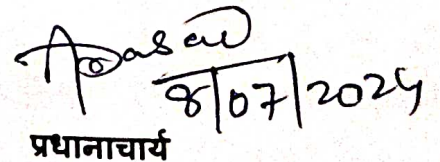 8/07/2024
प्रधानाचार्य